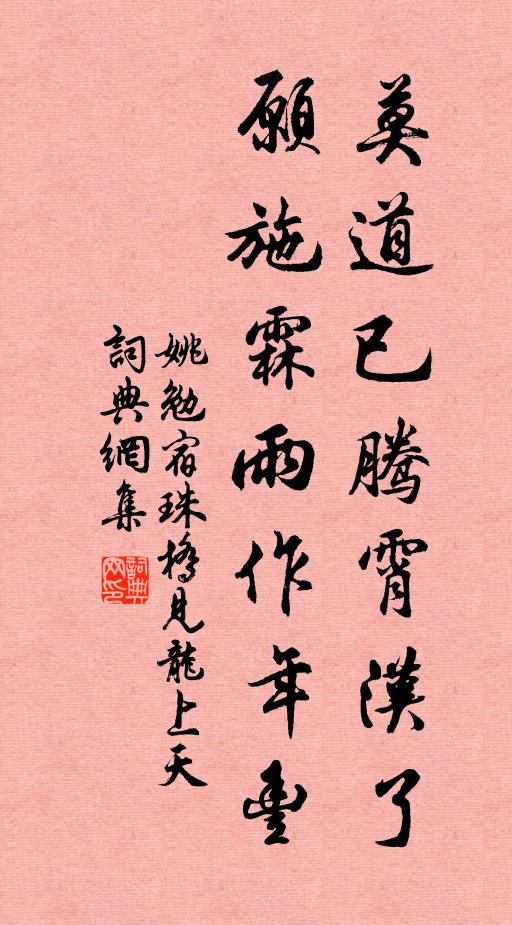 莫道已騰霄漢了
願施霖雨作年豐
姚勉宿珠橋見龍上天
詞典網集
詞典网印